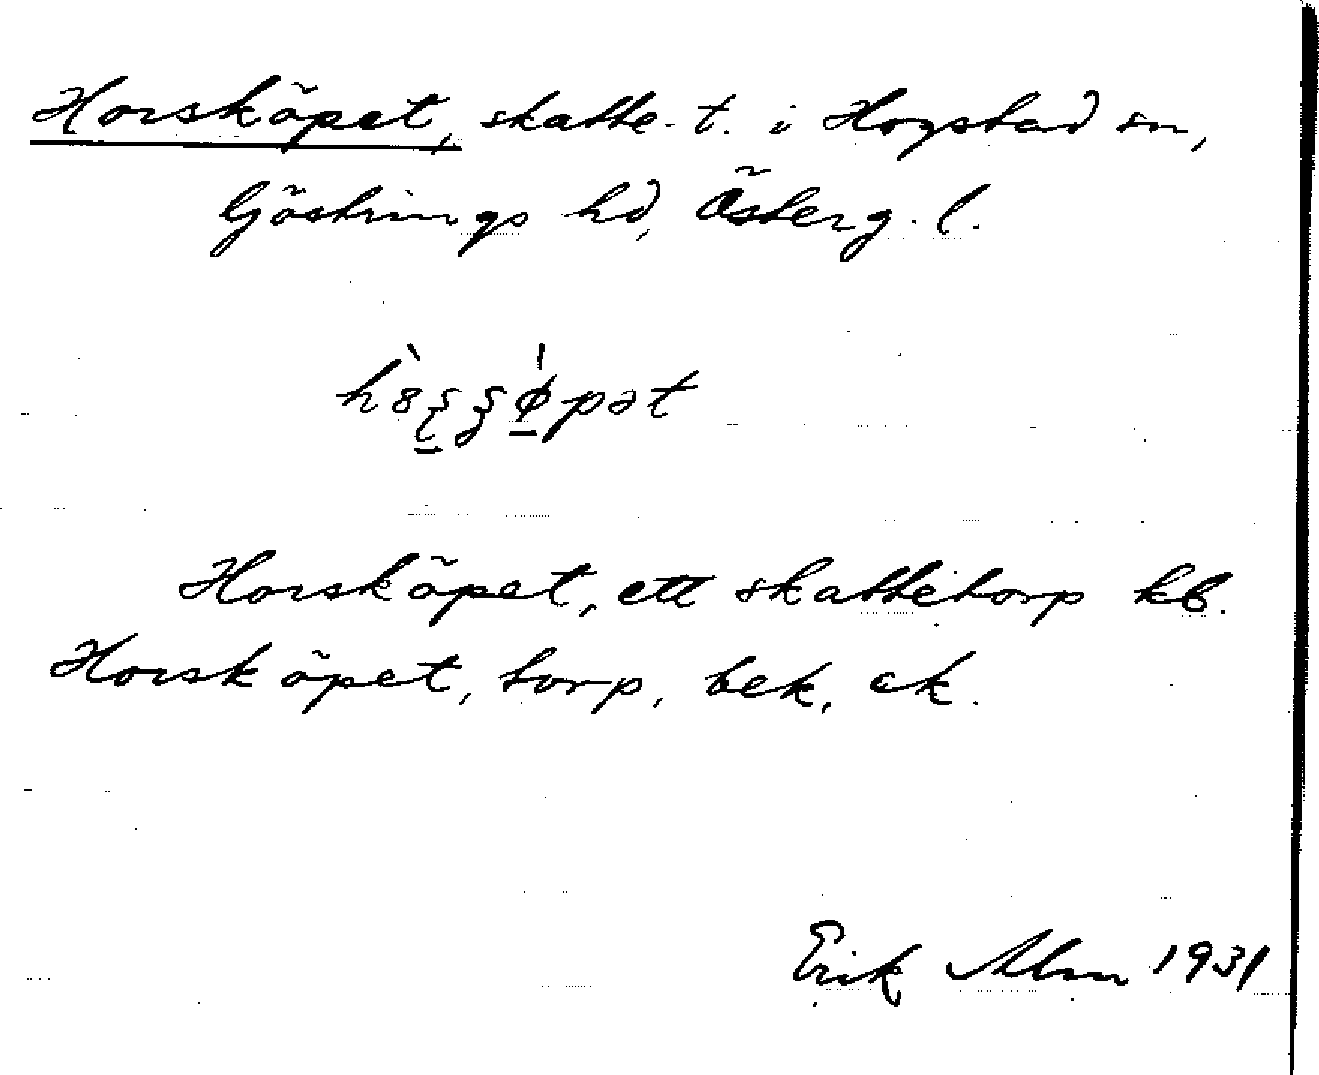 Horsköpet, skatte-t. i Hogstad sn,
Göstrings hd, Österg. l.
Horsköpet, ett skattetorp kb.
Horsköpet, torp, bek. ek.
Erik Alm 1931